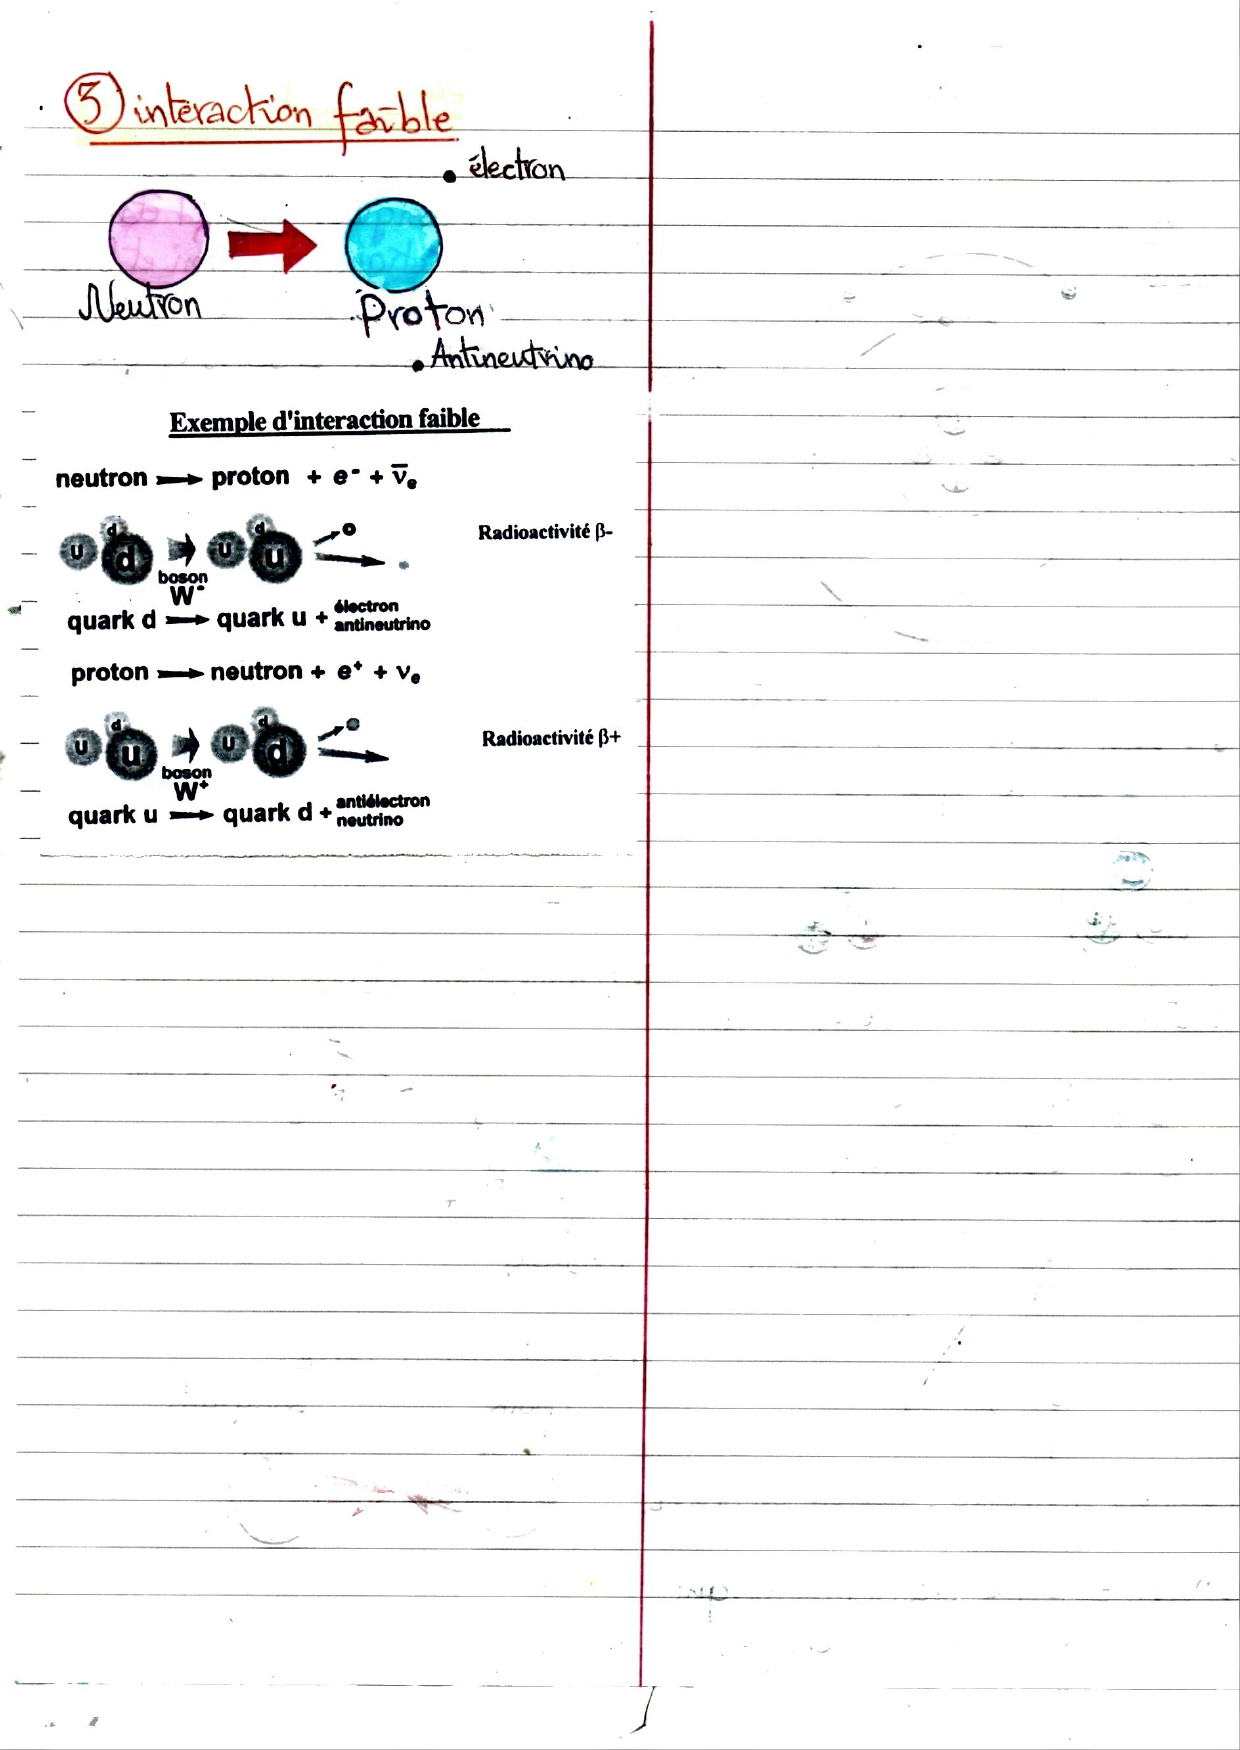 3 interaction faible
électron
Neutron
Proton
Antineutrino
Exemple d'interaction faible
neutron → proton + e⁻ + ν̄ₑ
u d d u d u
Radioactivité β-
boson
W⁻
quark d → quark u + électron
antineutrino
proton → neutron + e⁺ + νₑ
u d u u d d
Radioactivité β+
boson
W⁺
quark u → quark d + antiélectron
neutrino